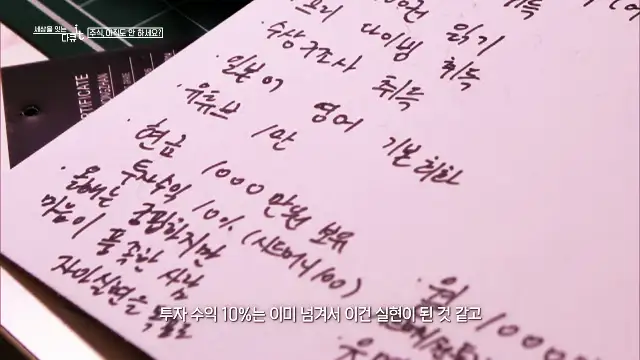 세상을 잇는
다큐 it
주식, 아직도 안 하세요?
CERTIFICATE
00권 읽기
취득
프리 다이빙 취득
수상구조사 취득
일본어 영어 기본 회화
유튜브 1만
· 현금 1000만원 보유
· 투자수익 10%
올해는 궁핍하지만
마음이 풍족한 사람
자아실현은
· 월 1000
투자 수익 10%는 이미 넘겨서 이건 실현이 된 것 같고